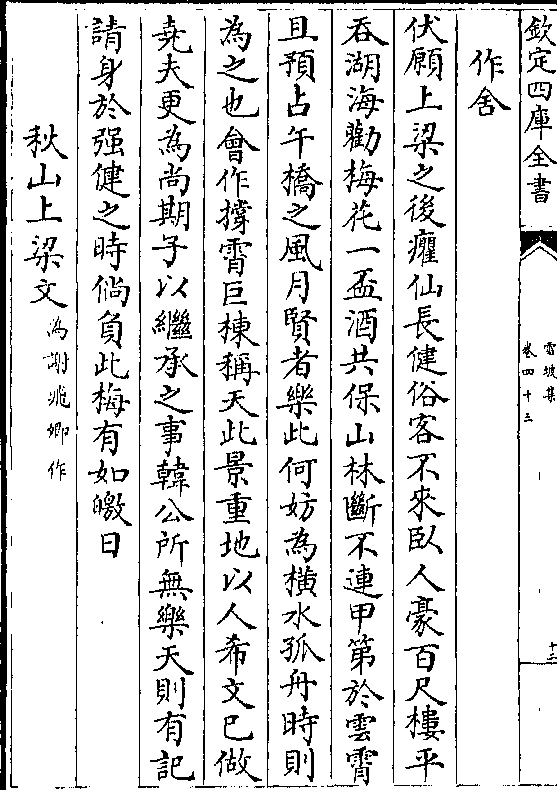 欽定四庫全書
雪坡集
卷四十三
十三
作舍
伏願上梁之後癯仙長健俗客不來臥人豪百尺樓平
吞湖海勸梅花一盃酒共保山林斷不連甲第於雲霄
且預占午橋之風月賢者樂此何妨為橫水孤舟時則
為之也會作撐霄巨棟稱天此景重地以人希文已做
堯夫更為尚期予以繼承之事韓公所無樂天則有記
請身於强健之時倘負此梅有如皦日
秋山上梁文為謝兆卿作